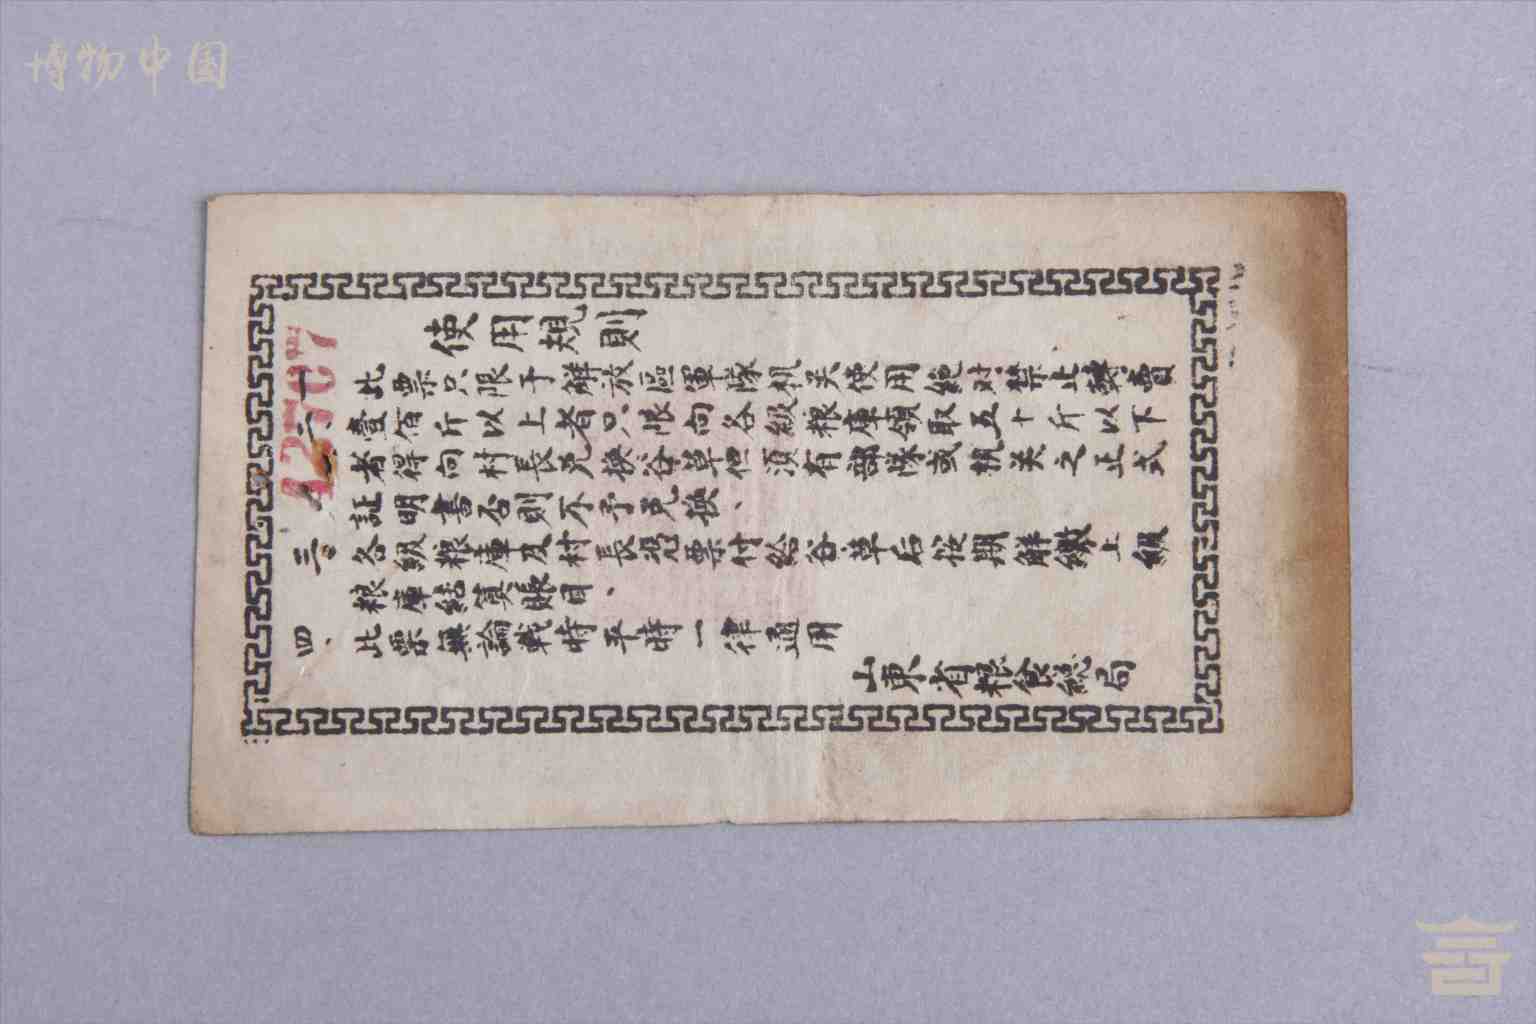 博物中国
使用規則
一、此票只限于解放區軍隊机关使用絶对禁止轉賣
二、壹佰斤以上者只限向各級粮庫領取五十斤以下
者得向村長兑换谷草但須有部隊或机关之正式
証明書否則不予兑换、
三、各級粮庫及村長凴票付給谷草后按期解繳上級
粮庫結算賬目、
四、此票無論戰時平時一律通用
山東省粮食總局